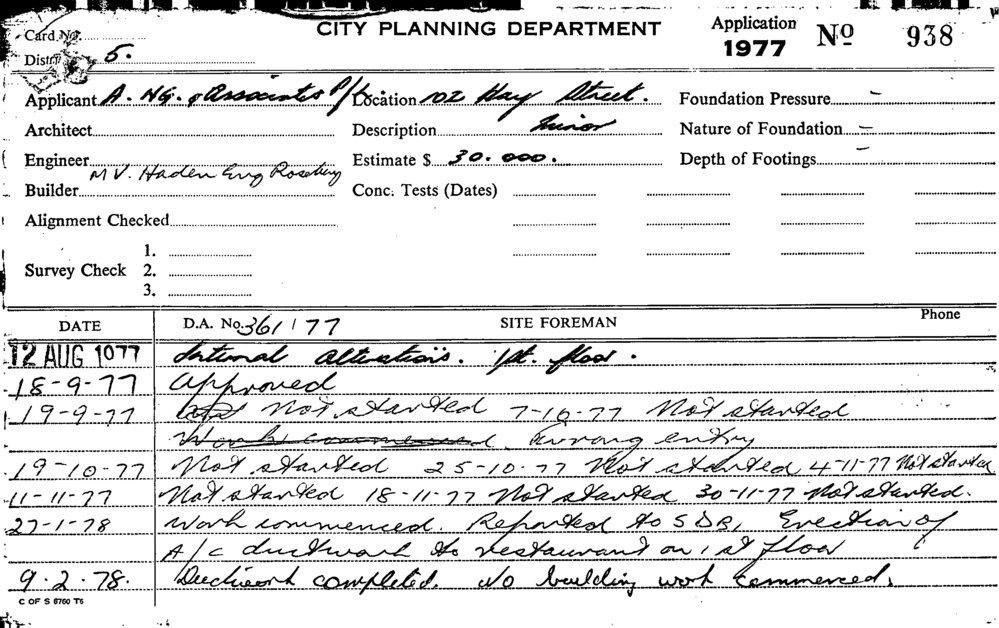 CITY PLANNING DEPARTMENT
Application 1977 Nº 938
Card No.
District 5.
Applicant A. NG. & Associates P/L. Location 702 Hay Street. Foundation Pressure –
Architect Description Minor Nature of Foundation –
Engineer Estimate $ 30.000. Depth of Footings –
M V. Haden Eng Rosebery
Builder Conc. Tests (Dates)
Alignment Checked
1.
Survey Check 2.
3.
DATE D.A. No. 361/77 SITE FOREMAN Phone
12 AUG 1977 Internal alterations. 1st. floor.
18-9-77 Approved
19-9-77 Not started 7-10-77 Not started
Work commenced wrong entry
19-10-77 Not started 25-10-77 Not started 4-11-77 Not started
11-11-77 Not started 18-11-77 Not started 30-11-77 Not started.
27-1-78 Work commenced. Reported to SDBI Erection of
A/c ductwork to restaurant on 1st floor
9.2.78. Ductwork completed. No building work commenced.
C OF S 8760 T6